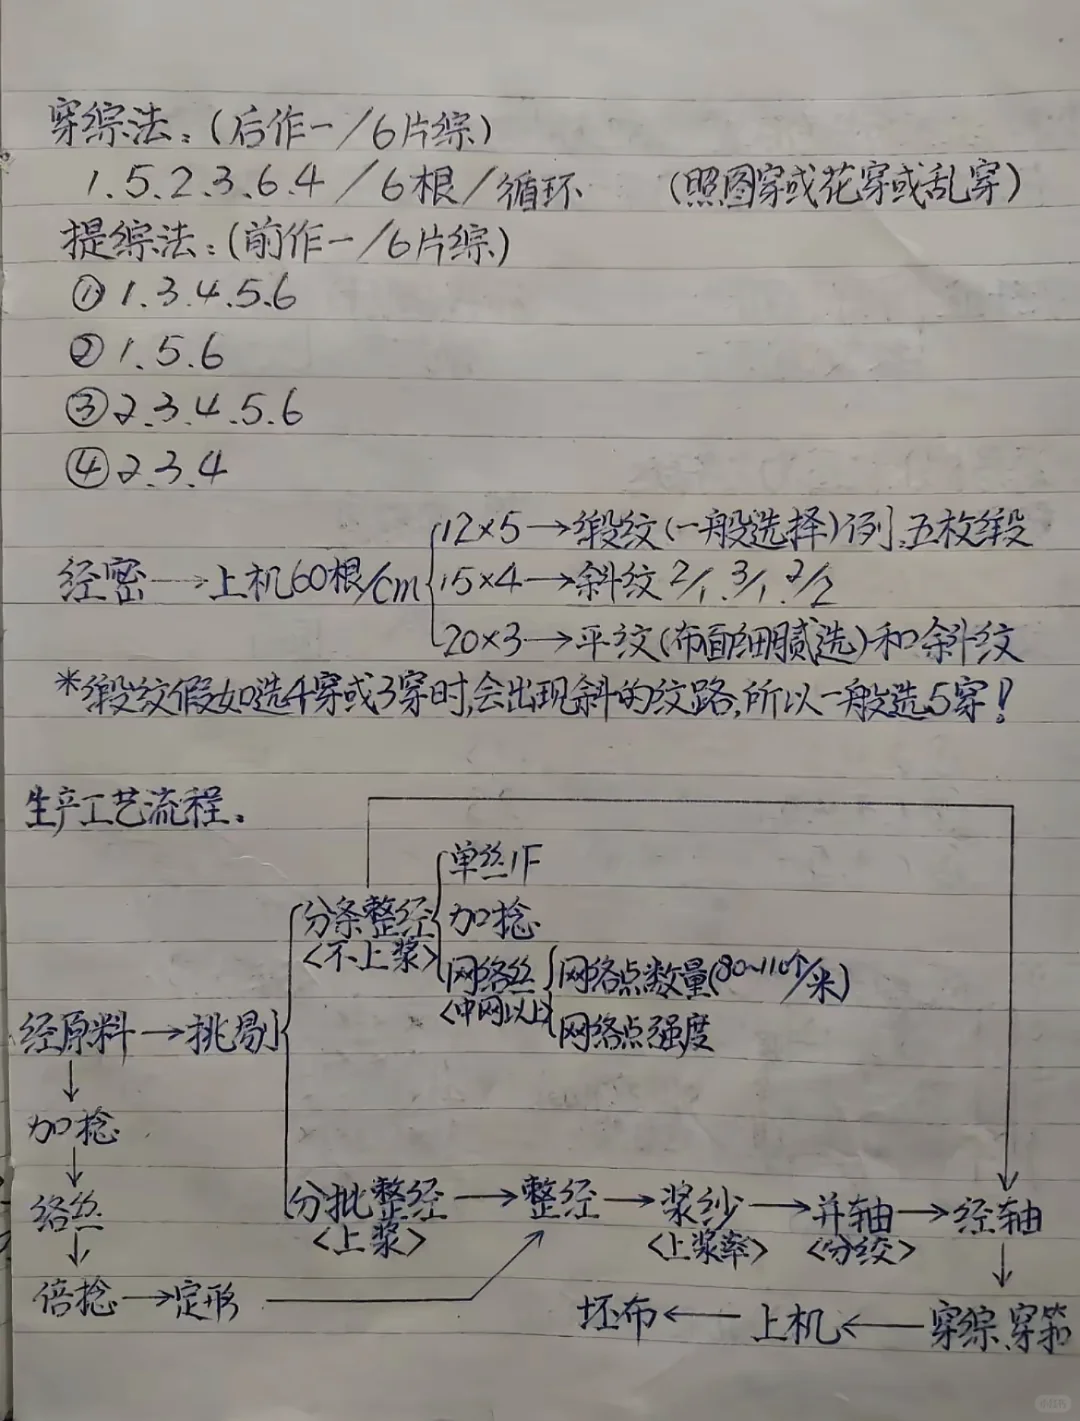 穿综法：(后作一/6片综)
1.5.2.3.6.4/6根/循环 (照图穿或花穿或乱穿)
提综法：(前作一/6片综)
①1.3.4.5.6
②1.5.6
③2.3.4.5.6
④2.3.4
12×5→缎纹(一般选择)例.五枚缎
经密→上机60根/cm 15×4→斜纹2/1.3/1.2/2
20×3→平纹(布面细腻选)和斜纹
*缎纹假如选4穿或3穿时,会出现斜的纹路,所以一般选5穿!
生产工艺流程.
单丝1F
分条整经 加捻
<不上浆>
网络丝 网络点数量(80~110个/米)
<中网以上>
网络点强度
经原料→挑剔
加捻
络丝 分批整经→整经→浆纱→并轴→经轴
<上浆> <上浆率> <分绞>
倍捻→定形
坯布←上机←穿综.穿筘
小红书